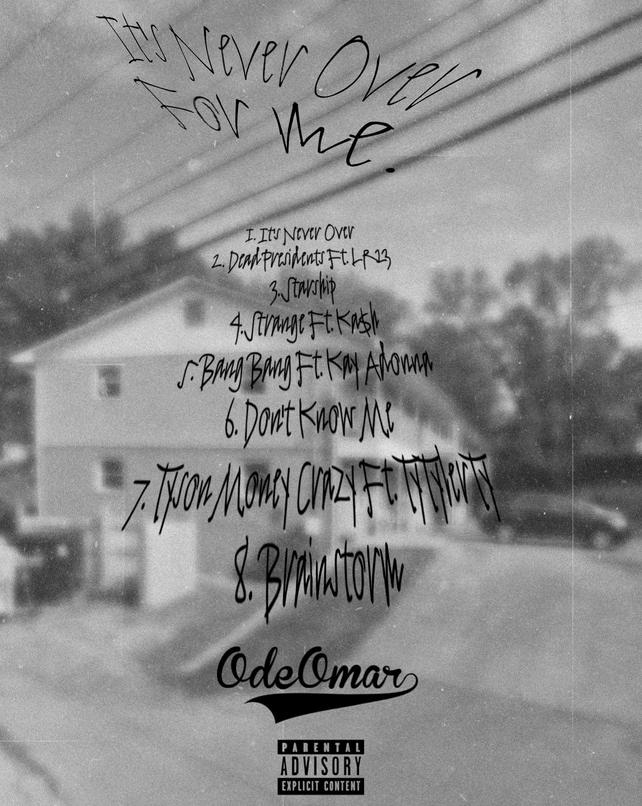 It's Never Over
For Me.
1. It's Never Over
2. Dead Presidents Ft. LR23
3. Starship
4. Strange Ft. Ka$h
5. Bang Bang Ft. Kay Adonna
6. Don't Know Me
7. Tyson Money Crazy Ft. TyTylerTy
8. Brainstorm
OdeOmar
PARENTAL
ADVISORY
EXPLICIT CONTENT